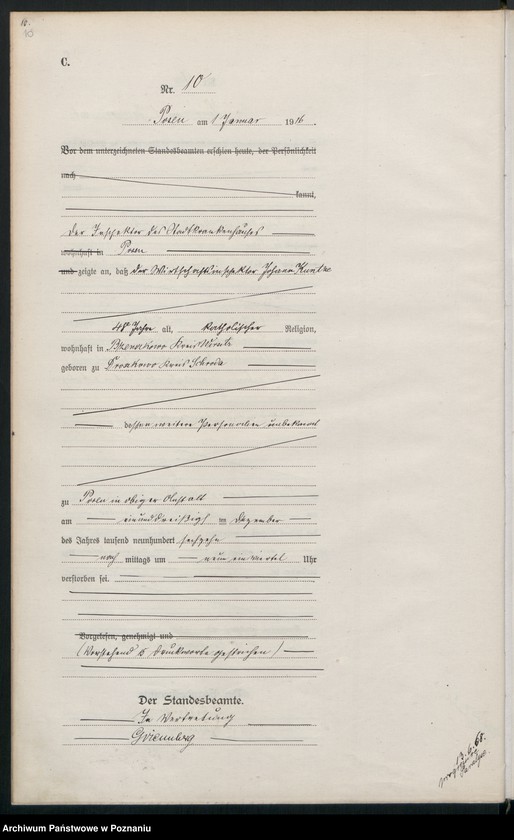 C.
Nr. 10
Posen am 1 Januar 1916
Vor dem unterzeichneten Standesbeamten erschien heute, der Persönlichkeit
nach
kannt,
der Inspektor des Stadtkrankenhauses
wohnhaft in Posen
und zeigte an, daß der Wirtschaftsinspektor Johann
48 Jahre alt, katholischer Religion,
wohnhaft in Kreis
geboren zu Kreis Schroda
dessen weitere Personalien unbekannt
zu Posen in obiger Anstalt
am einunddreißigst en Dezember
des Jahres tausend neunhundert
nach mittags um neun einviertel Uhr
verstorben sei.
Vorgelesen, genehmigt und
(Vorstehend Druckworte gestrichen)
Der Standesbeamte.
In Vertretung
Archiwum Państwowe w Poznaniu